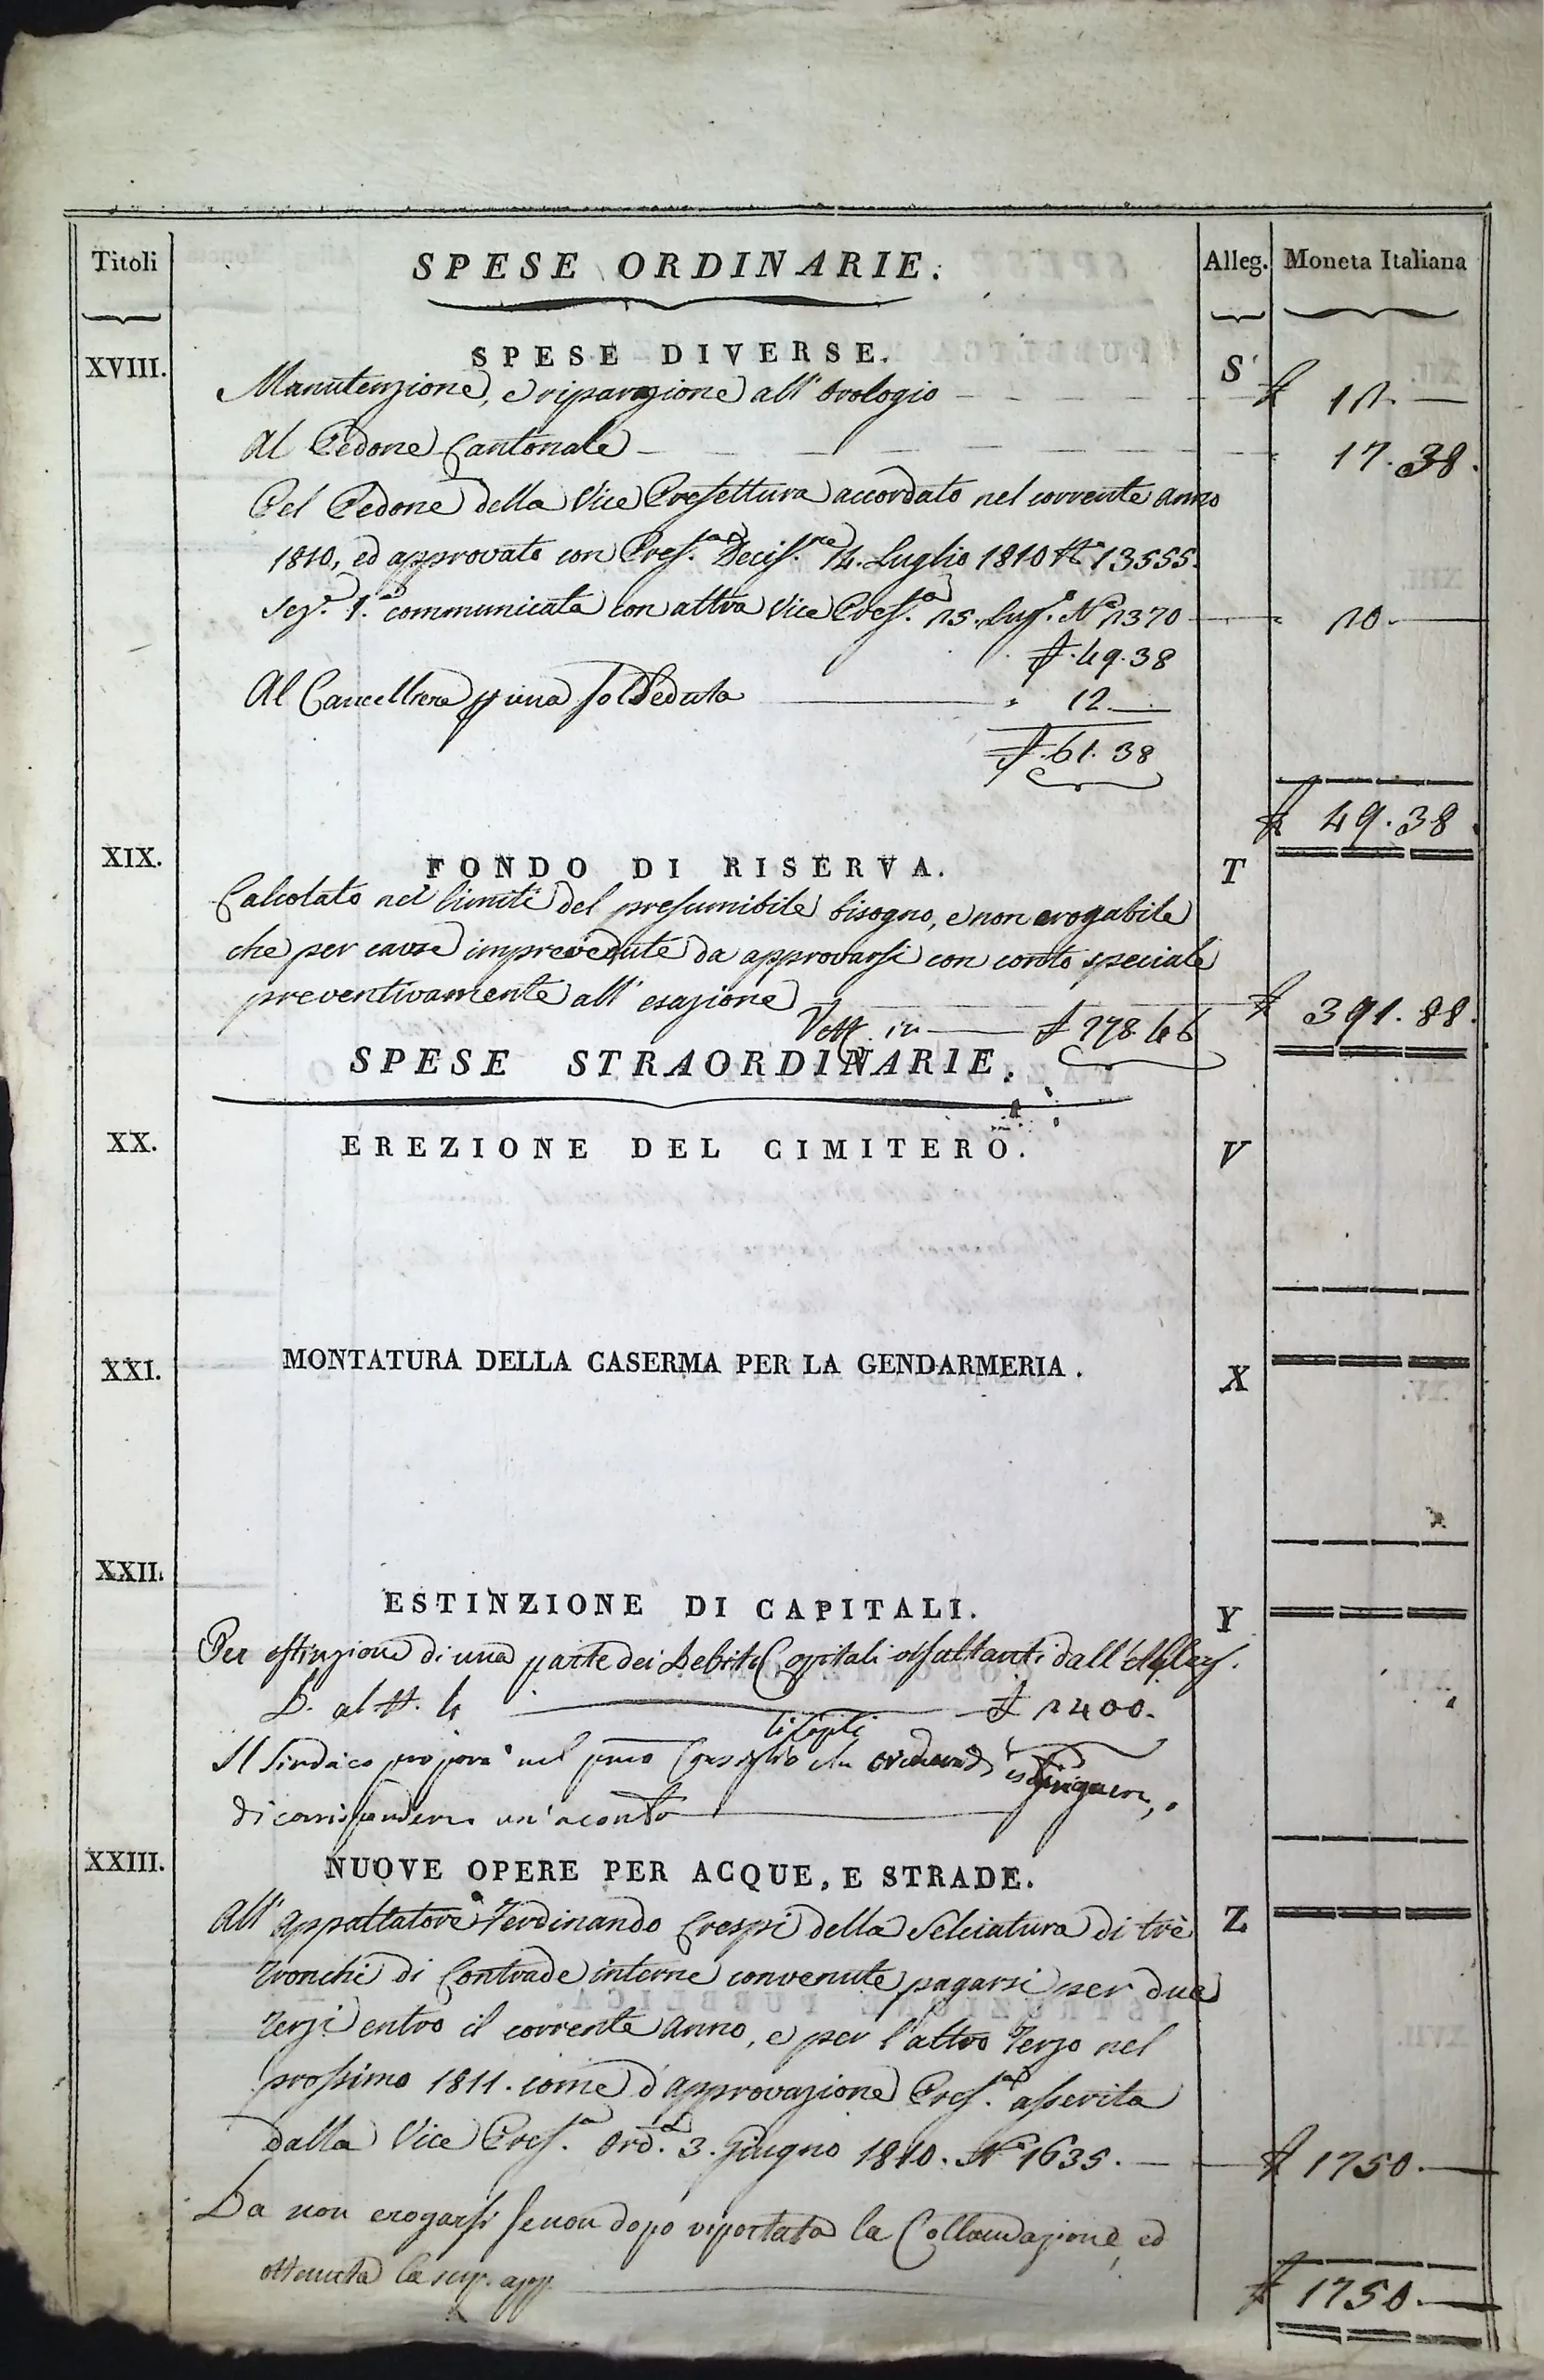 Titoli SPESE ORDINARIE. Alleg. Moneta Italiana
XVIII. SPESE DIVERSE. S
Manutenzione, e riparazione all' Orologio £ 12.
Al Pedone Cantonale 17.38.
Pel Pedone della Vice Prefettura accordato nel corrente anno
1810, ed approvato con Pref.a Deciss.ne 14. Luglio 1810 N.° 13555.
Sez.e 1.a communicata con altra Vice Pref.a 25. Lug.o N.° 2370 20.
£. 49.38
Al Cancelliere una sol Seduta 12.
£. 61.38
£ 49.38
XIX. FONDO DI RISERVA. T
Calcolato nei limiti del presumibile bisogno, e non erogabile
che per cause imprevedute da approvarsi con conto speciale
preventivamente all' esazione £ 391.88.
in £ 278.46
SPESE STRAORDINARIE.
XX. EREZIONE DEL CIMITERO. V
XXI. MONTATURA DELLA CASERMA PER LA GENDARMERIA. X
XXII. ESTINZIONE DI CAPITALI. Y
Per estinzione di una parte dei Debiti Capitali risultanti dall' Alleg.
D. al N. 4 £ 2400.
Il Sindaco proporà nel pmo Consiglio
di corrispondere un' aconto
XXIII. NUOVE OPERE PER ACQUE, E STRADE. Z
All' Appaltatore Ferdinando Crespi della Selciatura di trè
Tronchi di Contrade interne convenute pagarsi per due
Terzi entro il corrente Anno, e per l'altro Terzo nel
prossimo 1811. come d'approvazione Pref.a asserita
dalla Vice Pref.a Ord.a 3. Giugno 1810. N.° 1635. £ 1750.
Da non erogarsi se non dopo riportata la Collaudazione, ed
ottenuta la sup. app. £ 1750.